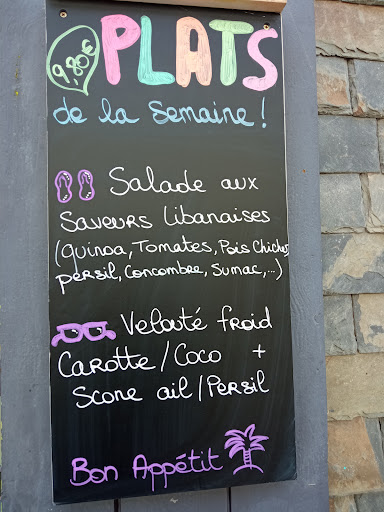 9.80€
PLATS
de la Semaine !
Salade aux
Saveurs Libanaises
(quinoa, Tomates, Pois Chiches,
persil, Concombre, Sumac, ...)
Velouté froid
Carotte/Coco +
Scone ail/Persil
Bon Appétit